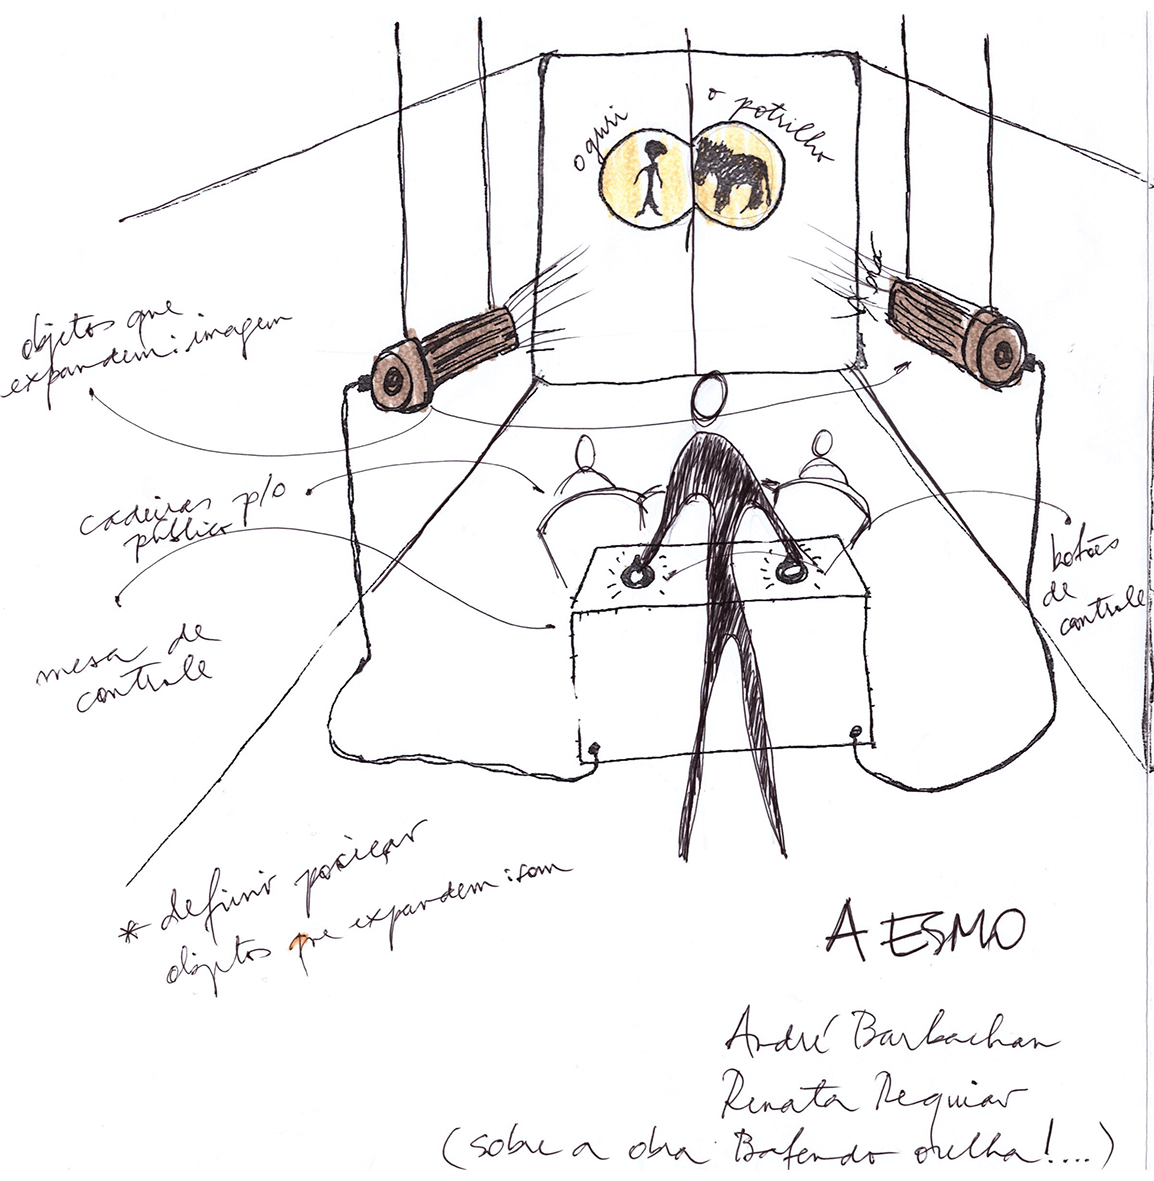 o guri
o potrilho
objetos que
expandem: imagem
cadeiras p/o
público
mesa de
controle
botões
de
controle
* definir posição
objetos que expandem: som
A ESMO
André Barbachan
Renata Requião
(sobre a obra Batendo orelha!....)